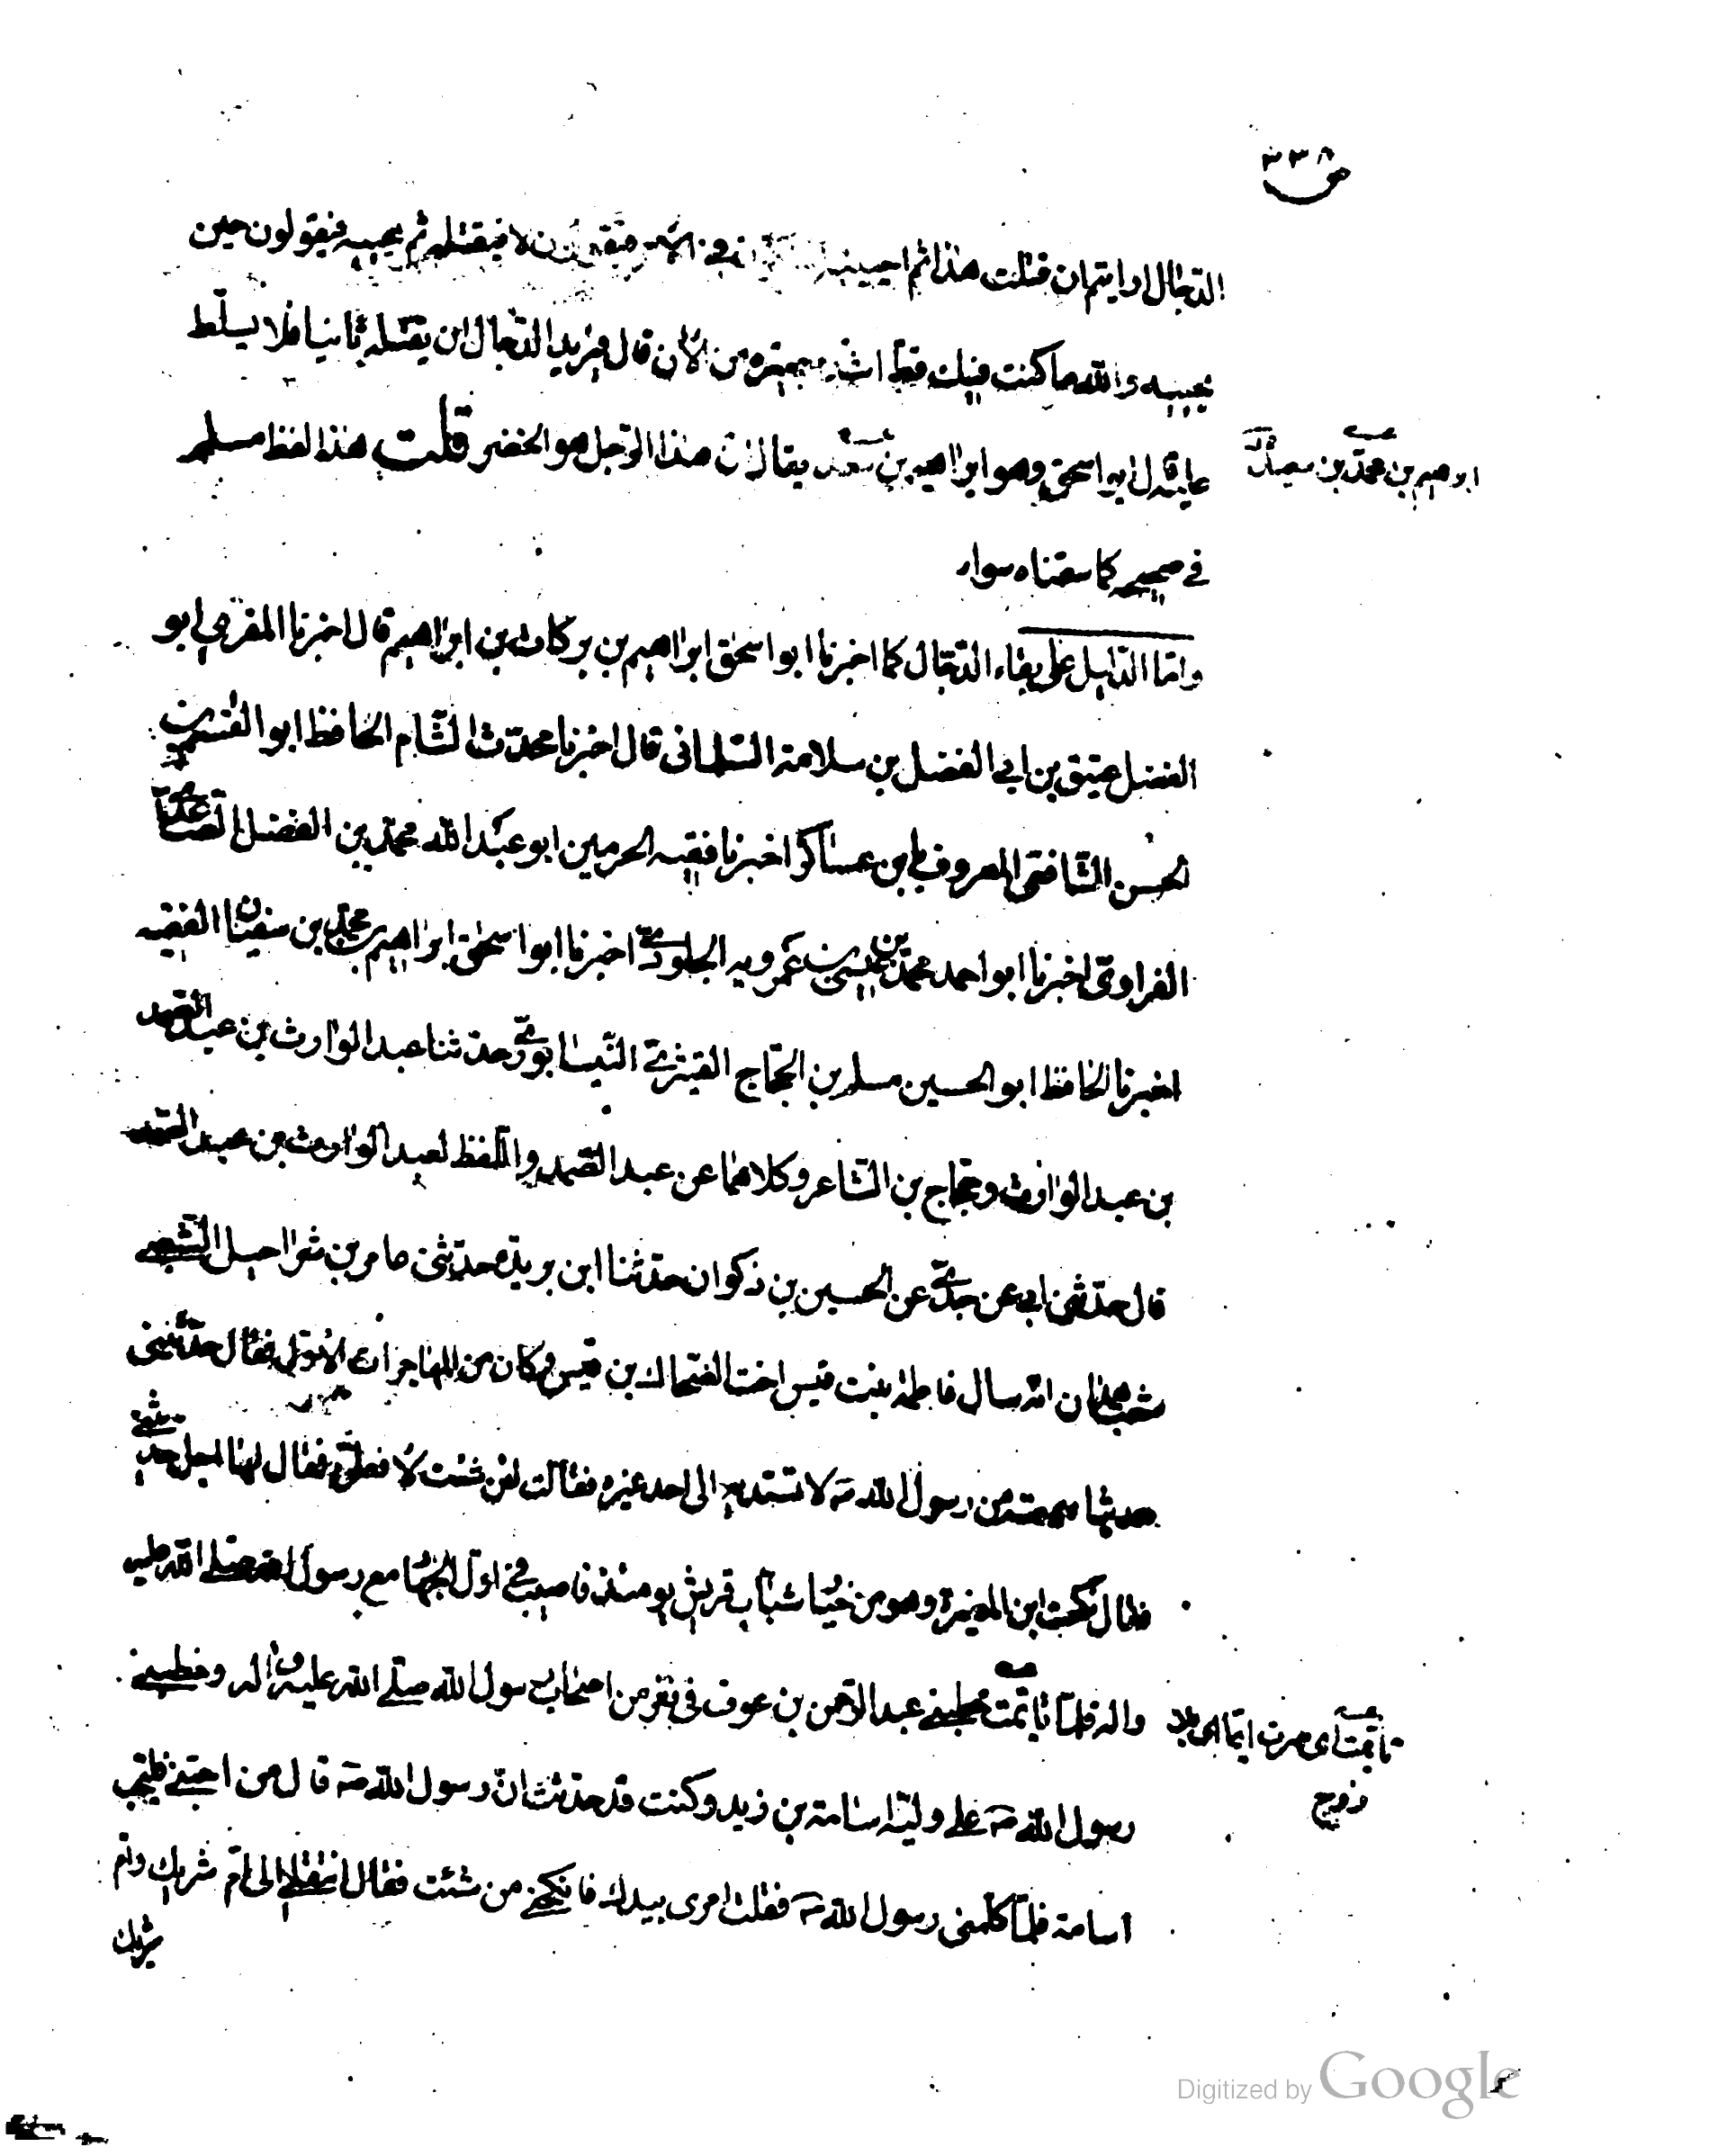 ٣٣٨
الدّجال ارايتم ان قتلت هذا ثم احييته اتشكّون في الامر فيقولون لا فيقتله ثم يحييه فيقولون حين
يحييه والله ما كنت فيك قط اشدّ بصيرة من الآن قال فيريد الدّجال ان يقتله ثانيا فلا يسلّط
عليه قال ابو اسحق وهو ابراهيم بن سعد يقال انّ هذا الرّجل هو الخضر قلت هذا لفظ مسلم
ابرهيم بن محمّد بن سعيد
في صحيحه كما سقناه سواء
وامّا الدّليل على بقاء الدّجال كما اخبرنا ابو اسحق ابراهيم بن بركات بن ابراهيم قال اخبرنا المقرى ابو
الفضل عتيق بن ابي الفضل بن سلامة السّلمانى قال اخبرنا محدّث الشّام الحافظ ابو القسم بن
الحسن الشّافعى المعروف بابن عساكر اخبرنا فقيه الحرمين ابو عبد الله محمّد بن الفضل الصّاعدىّ
الفراوىّ اخبرنا ابو احمد محمّد بن عيسى بن عمرويه الجلودىّ اخبرنا ابو اسحق ابراهيم بن محمّد بن سفيان الفقيه
اخبرنا الحافظ ابو الحسين مسلم بن الحجّاج القشيرىّ النّيسابورىّ حدّثنا عبد الوارث بن عبد الصّمد
بن عبد الوارث وحجّاج بن الشّاعر وكلاهما عن عبد الصّمد واللّفظ لعبد الوارث بن عبد الصّمد
قال حدّثنى ابى عن جدّىّ عن الحسين بن ذكوان حدّثنا ابن بريدة حدّثنى عامر بن شراحيل الشّعبى
شعب همدان انّه سال فاطمة بنت قيس اخت الضّحاك بن قيس وكان من المهاجرات الاوّل فقال حدّثينى
حديثا سمعته من رسول الله صه لا تسنديه الى احد غيره فقالت لئن شئت لافعلنّ فقال لها اجل حدّثينى
فقال نكحت ابن المغيرة وهو من خيار شباب قريش يومئذ فاصيب فى اوّل الجهاد مع رسول الله صلى الله عليه
واله فلمّا تايّمت خطبنى عبد الرّحمن بن عوف فى نفر من اصحاب رسول الله صلّى الله عليه واله وخطبنى
تايّمت اى صرت ايّما اى بلا
زوج
رسول الله صه على وليّه اسامة بن زيد وكنت قد حدّثت انّ رسول الله صه قال من احبّنى فليحبّ
اسامة فلمّا كلّمنى رسول الله صه فقلت امرى بيدك فانكحنى من شئت فقال انتقلى الى امّ شريك وامّ
شريك
Digitized by Google